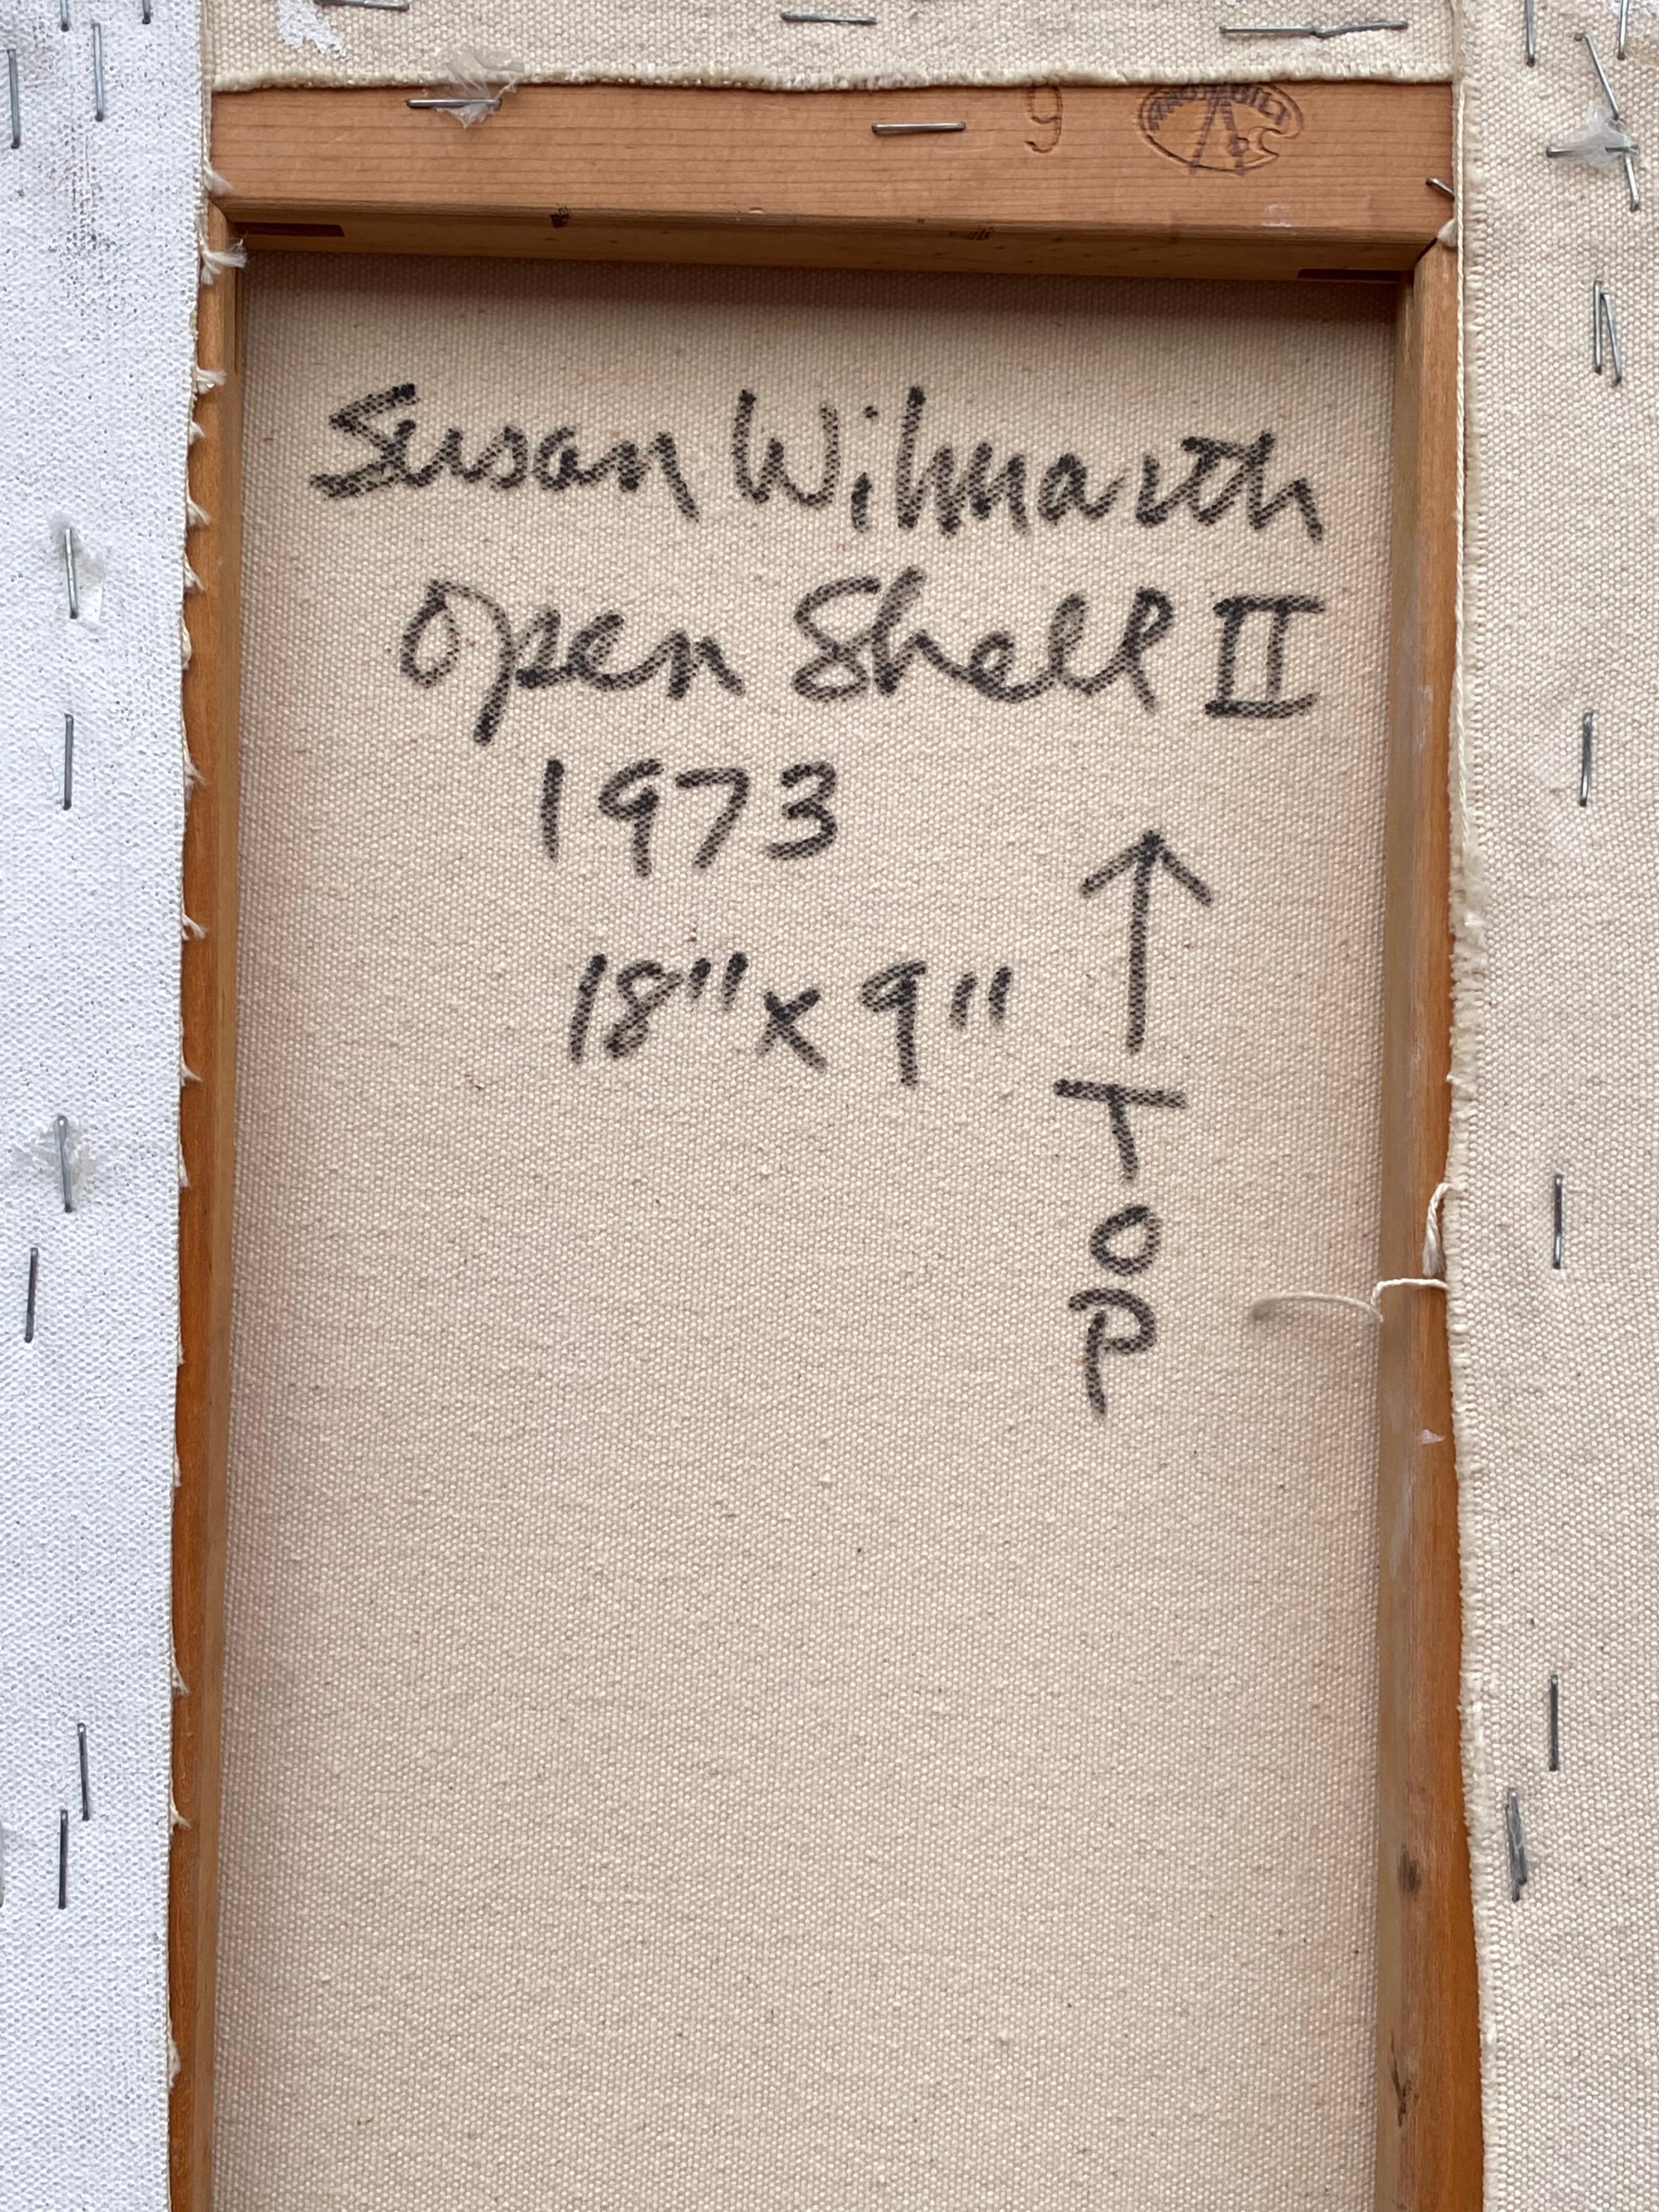 9
Susan Wilmarth
Open Shell II
1973
18" x 9"
TOP